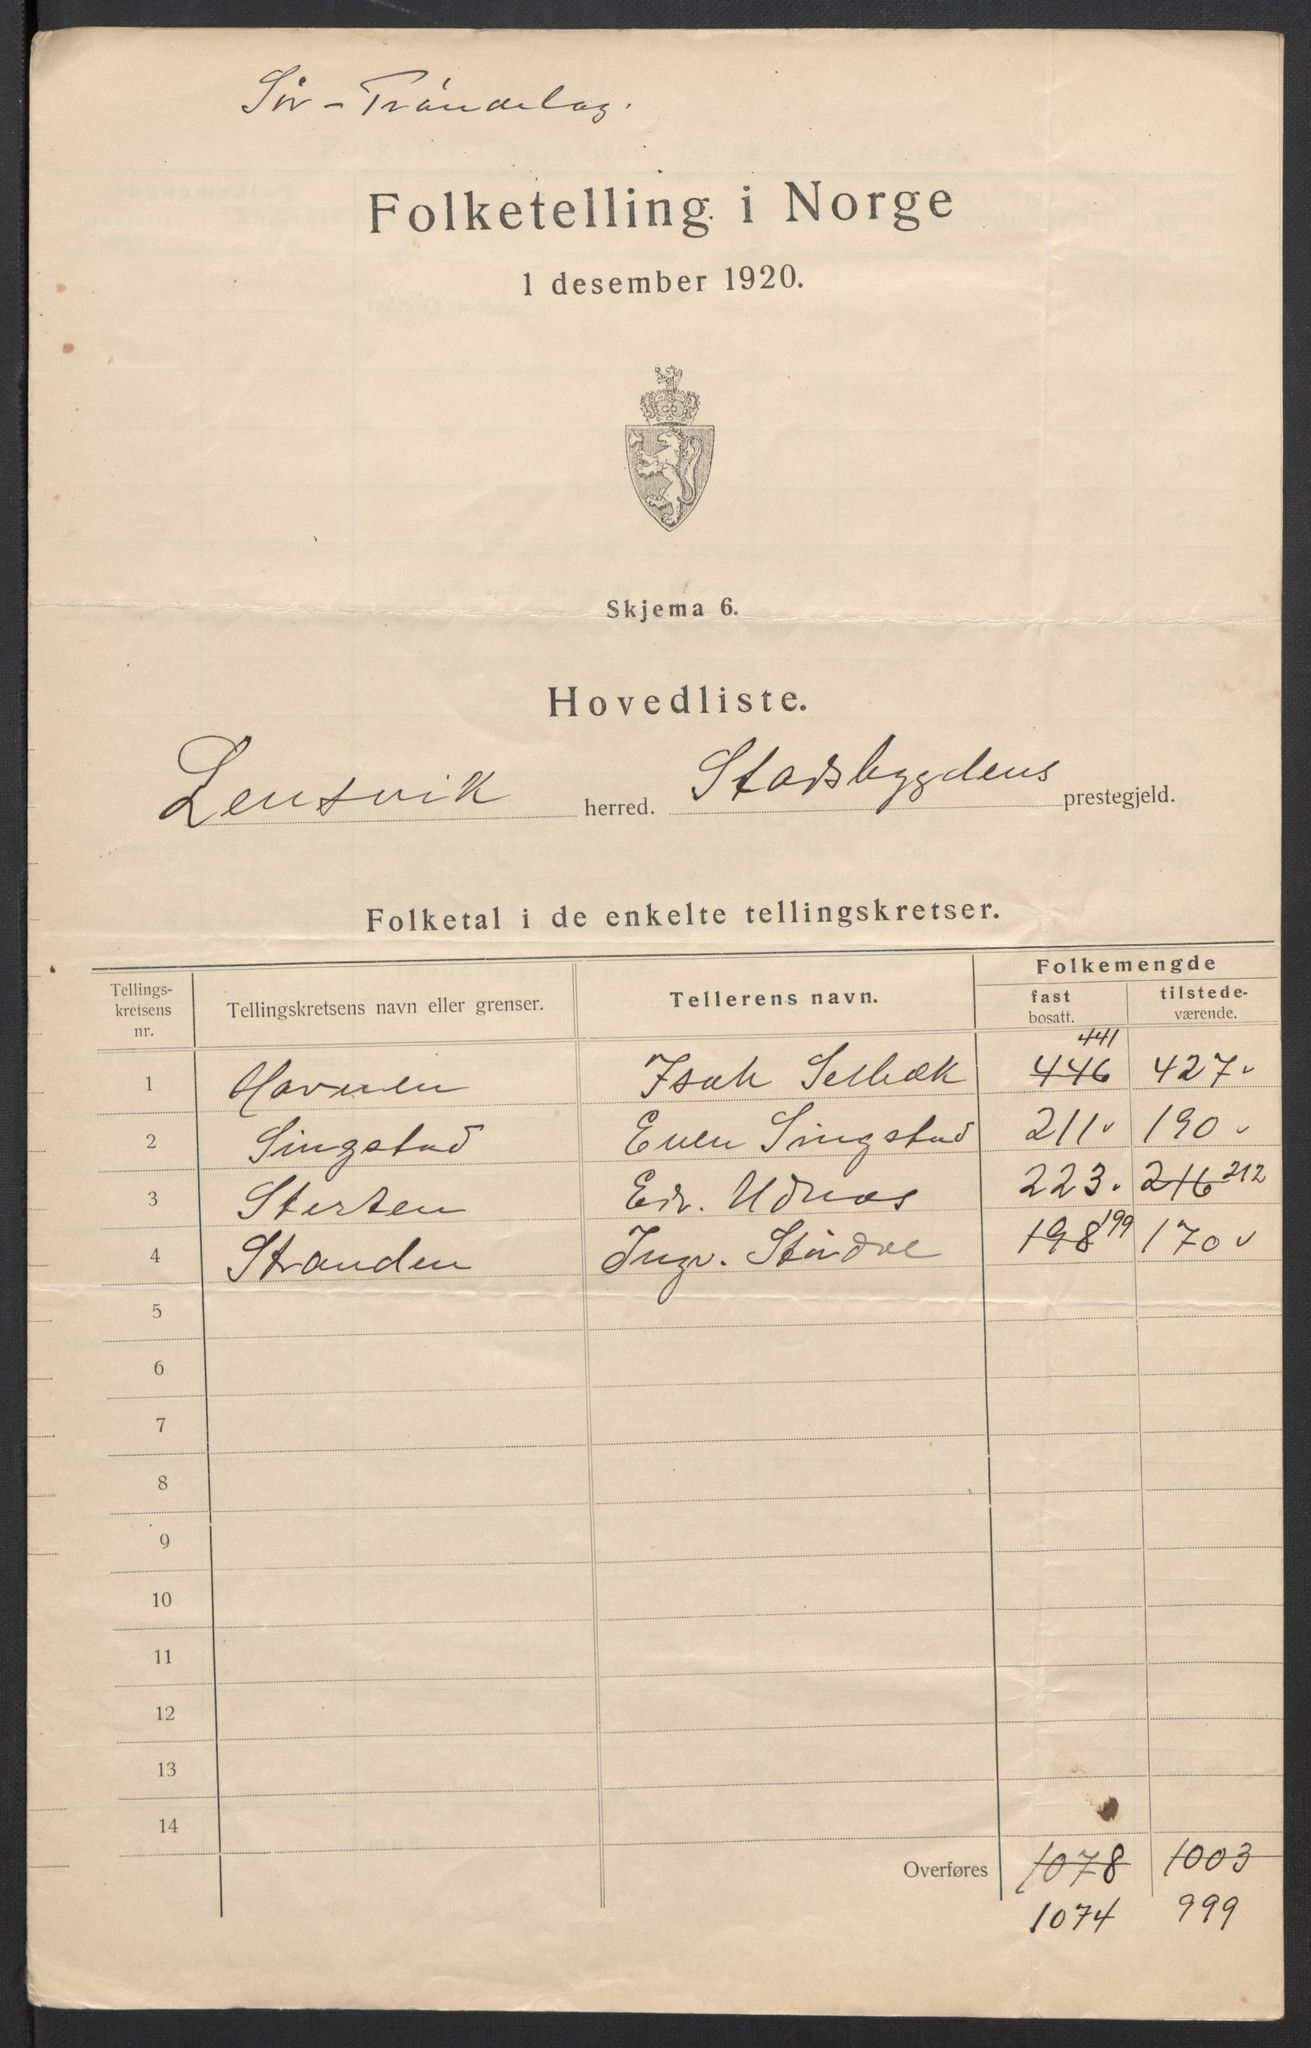 Sör-Tröndelag.
Folketelling i Norge
1 desember 1920.
Skjema 6.
Hovedliste.
Lensvik herred. Stadsbygdens prestegjeld.
Folketal i de enkelte tellingskretser.
Tellings-kretsens nr. Tellingskretsens navn eller grenser. Tellerens navn. Folkemengde
fast bosatt. tilstede-værende.
441
1 Havnen Isak Selbæk 446 427
2 Singstad Even Singstad 211 190
3 Sterten Edv. Udnæs 223 216 212
4 Stranden Ingv. 198 199 170
5
6
7
8
9
10
11
12
13
14
Overføres 1078 1003
1074 999